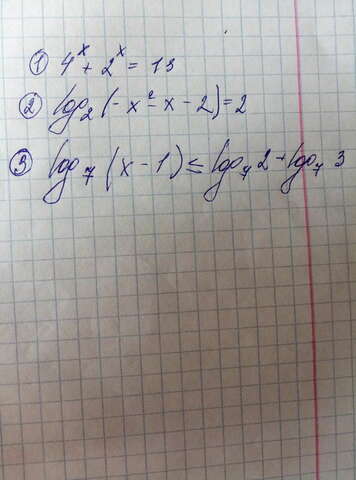 ① 4ˣ + 2ˣ = 13
② log₂(-x² - x - 2) = 2
③ log₇(x - 1) ≤ log₇ 2 + log₇ 3